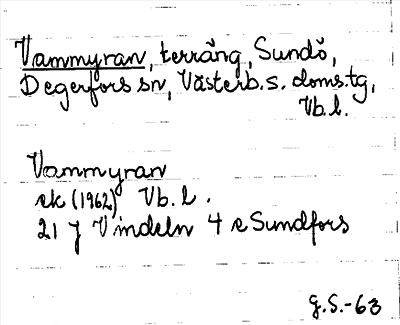 Vammyran, terräng, Sundö,
Degerfors sn, Västerb.s. doms.tg,
Vb.l.
Vammyran
ek (1962) Vb.l.
21 J Vindeln 4 e Sundfors
G.S.-63